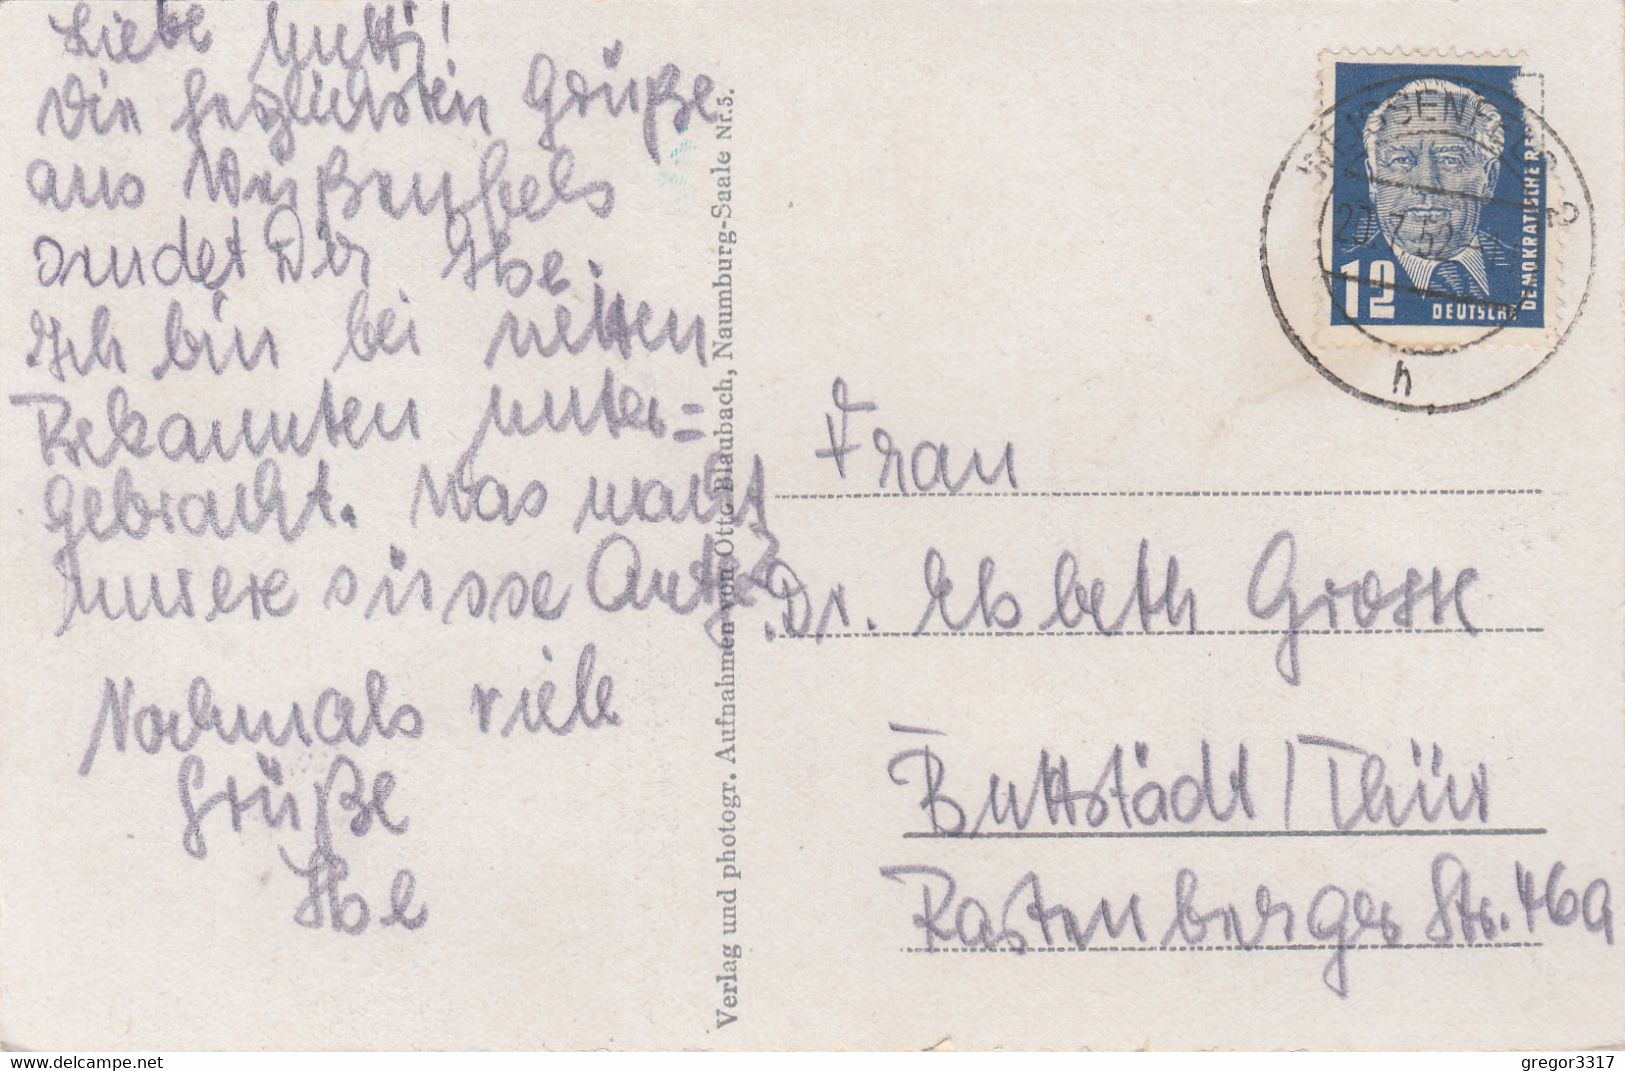 Liebe Mutti!
Die herzlichsten Grüße
aus Weißenfels
sendet Dir Ilse.
Ich bin bei netten
Bekannten unter=
gebracht. Was macht
unsere süsse Antje?
Nochmals viele
Grüße
Ilse
Verlag und photogr. Aufnahmen von Otto Blaubach, Naumburg-Saale Nr. 5.
12
DEUTSCHE
DEMOKRATISCHE RE
20.7.52
h
Frau
Dr. Elsbeth Grosse
Buttstädt / Thür
Rastenberger Str. 46a
www.delcampe.net
gregor3317